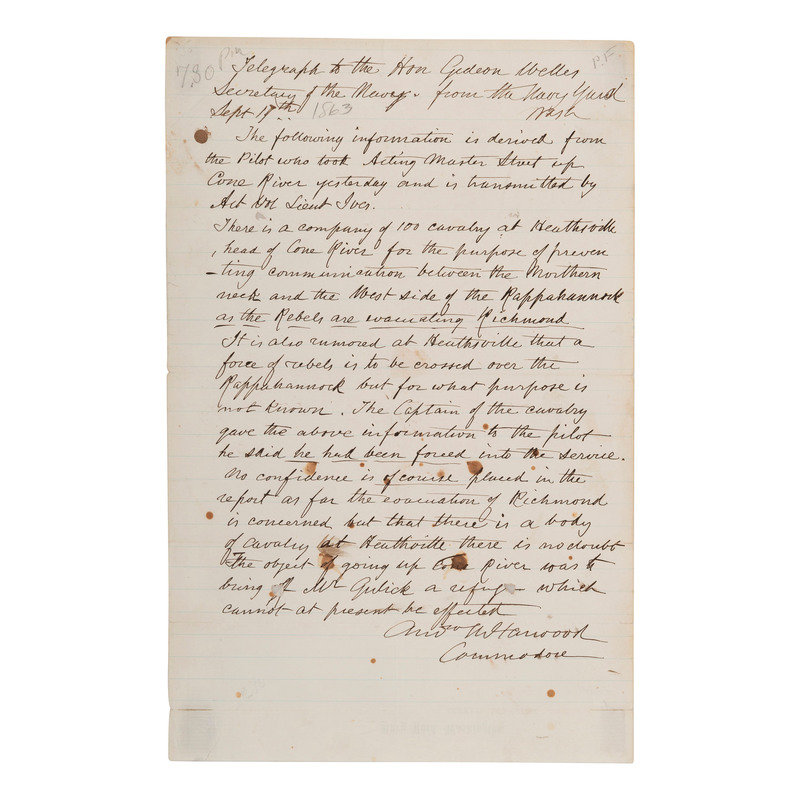 7,30 Pm
P.F.
Telegraph to the Hon Gideon Welles
Secretary of the Navy. from the Navy Yard
Wash
Sept 17th 1863
The following information is derived from
the Pilot who took Acting Master Street up
Cone River yesterday and is transmitted by
Act Vol Lieut Ives.
There is a company of 100 cavalry at Heathsville
, head of Cone River for the purpose of preven
-ting communication between the Northern
neck and the West side of the Rappahannock
as the Rebels are evacuating Richmond
It is also rumored at Heathsville that a
force of rebels is to be crossed over the
Rappahannock but for what purpose is
not known. The Captain of the cavalry
gave the above information to the pilot
he said he had been forced into the service.
No confidence is of course placed in the
report as far the evacuation of Richmond
is concerned but that there is a body
of cavalry at Heathville there is no doubt
The object of going up Cone River was to
bring off Mr Gulick a refuge which
cannot at present be effected
Andw A Harwood
Commodore